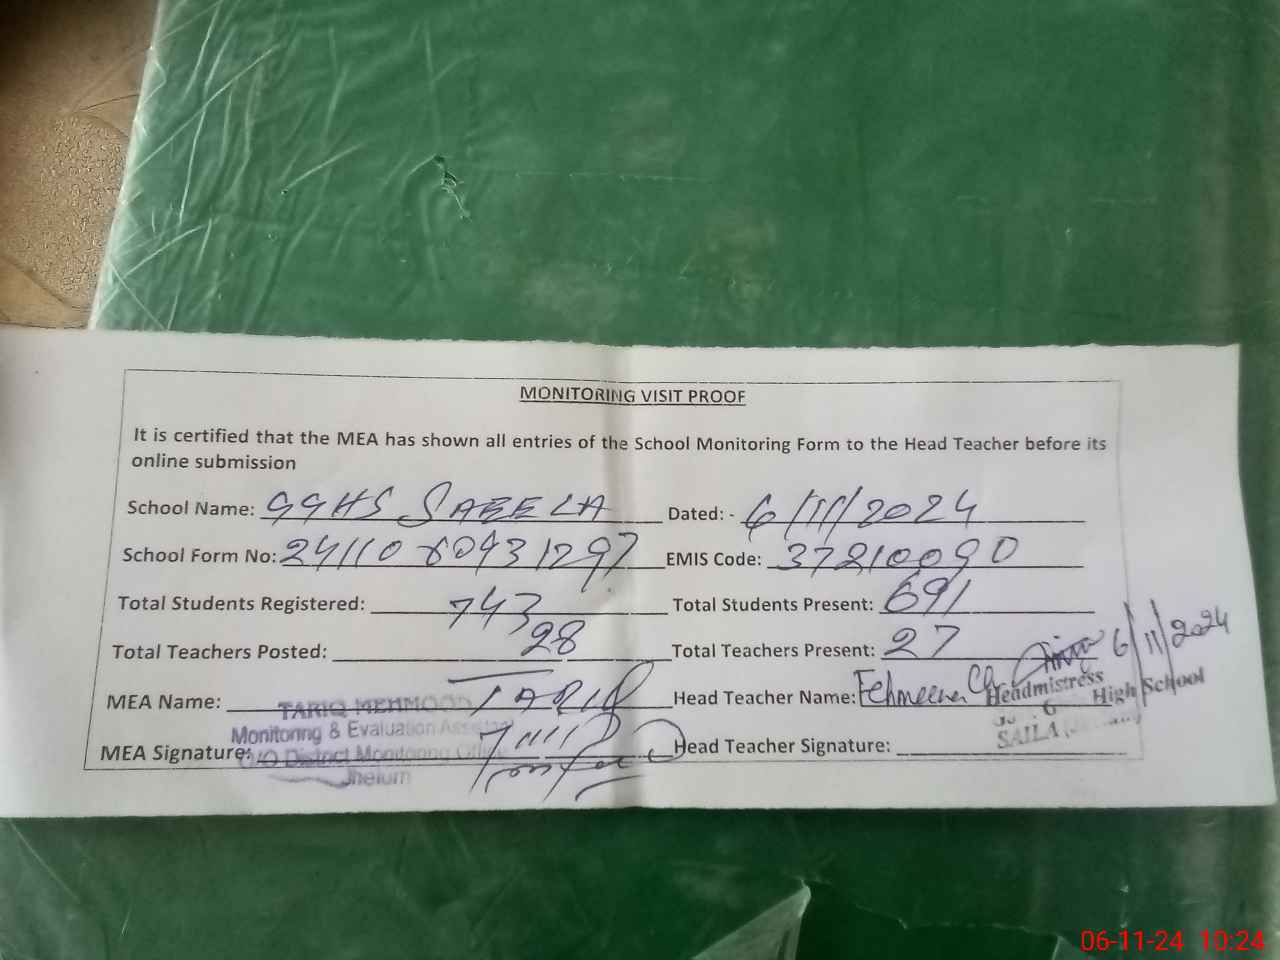 MONITORING VISIT PROOF
It is certified that the MEA has shown all entries of the School Monitoring Form to the Head Teacher before its
online submission
School Name: GGHS SAEELA Dated: - 6/11/2024
School Form No: EMIS Code: 37210090
Total Students Registered: 743 Total Students Present: 691
Total Teachers Posted: 28 Total Teachers Present: 27
6/11/2024
MEA Name: TARIQ Head Teacher Name:
TARIQ MEHMOOD
Headmistress
High School
SAILA
Monitoring & Evaluation Assistant
MEA Signature: Head Teacher Signature:
O/O District Monitoring Office
Jhelum
06-11-24 10:24